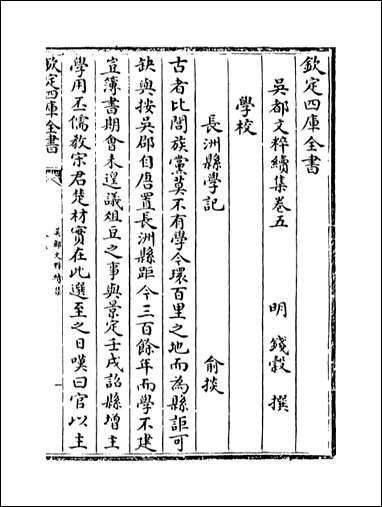 欽定四庫全書
吳都文粹續集卷五
明 錢穀 撰
學校
長洲縣學記 俞掞
古者比閭族黨莫不有學今環百里之地而為縣詎可
缺與按吳郡自唐置長洲縣距今三百餘年而學不建
豈簿書期會未遑議俎豆之事與景定壬戌詔縣增主
學用丕儒教宋君楚材實在此選至之日嘆曰官以主
欽定四庫全書
吳都文粹續集
一